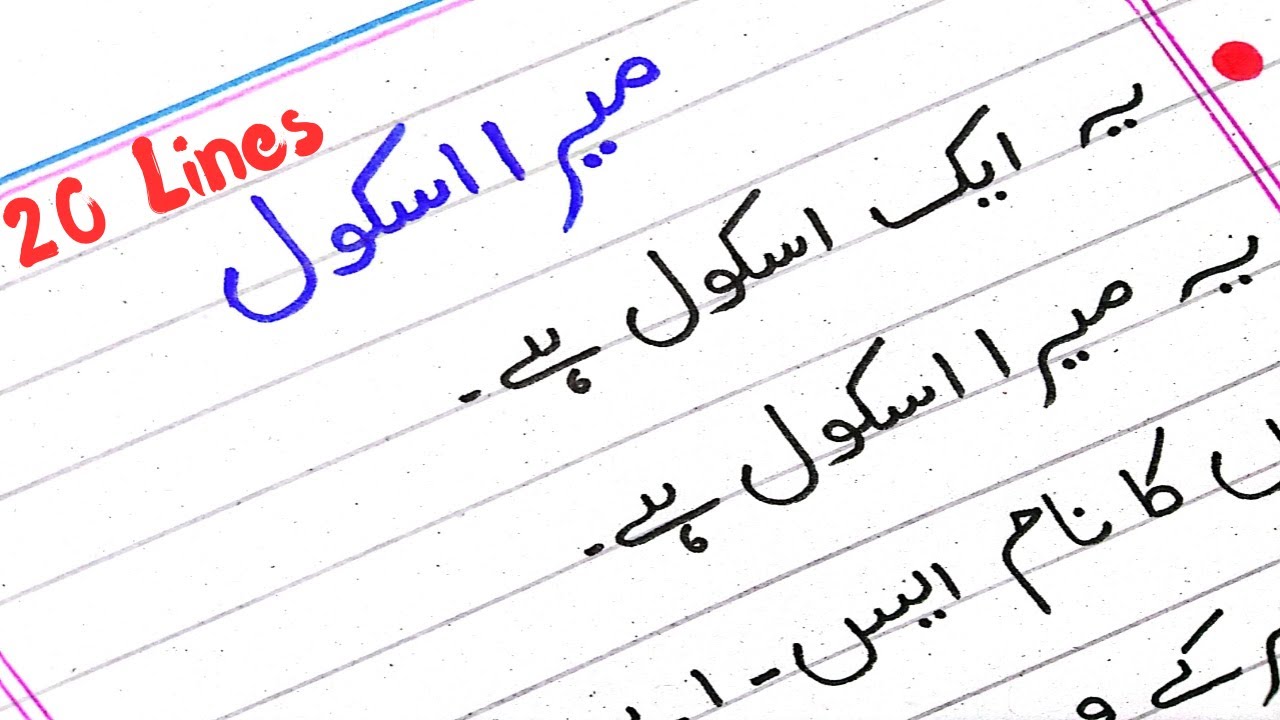 20 Lines
میرا اسکول
یہ ایک اسکول ہے۔
یہ میرا اسکول ہے۔
کا نام ایس-
کے